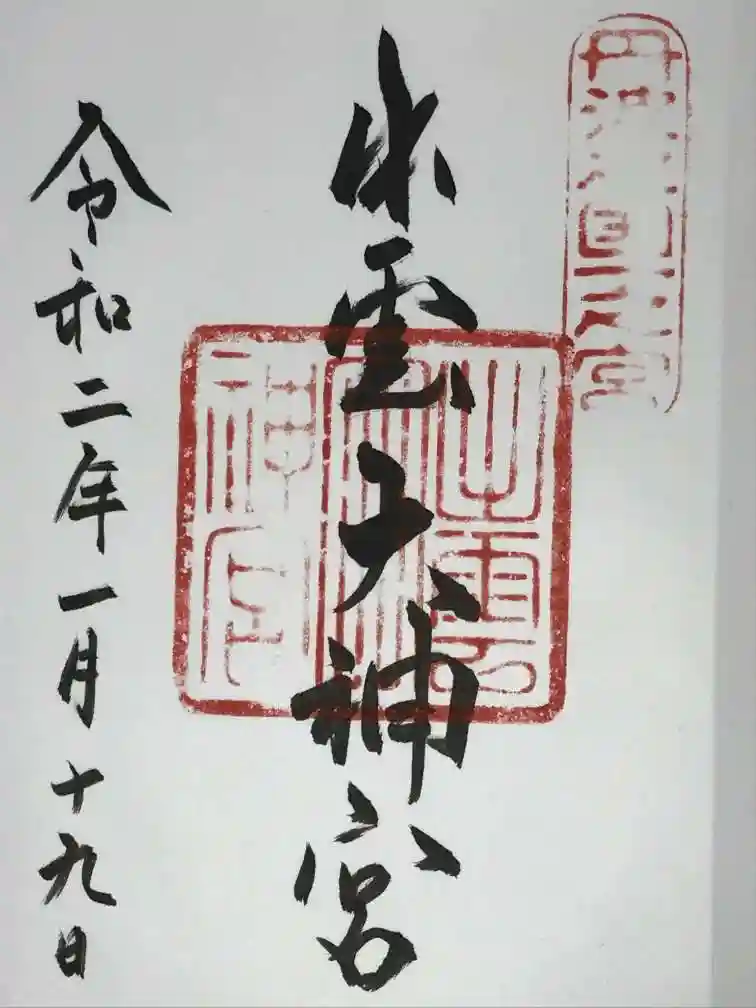 丹波國一之宮
出雲大神宮
令和二年一月十九日
出雲